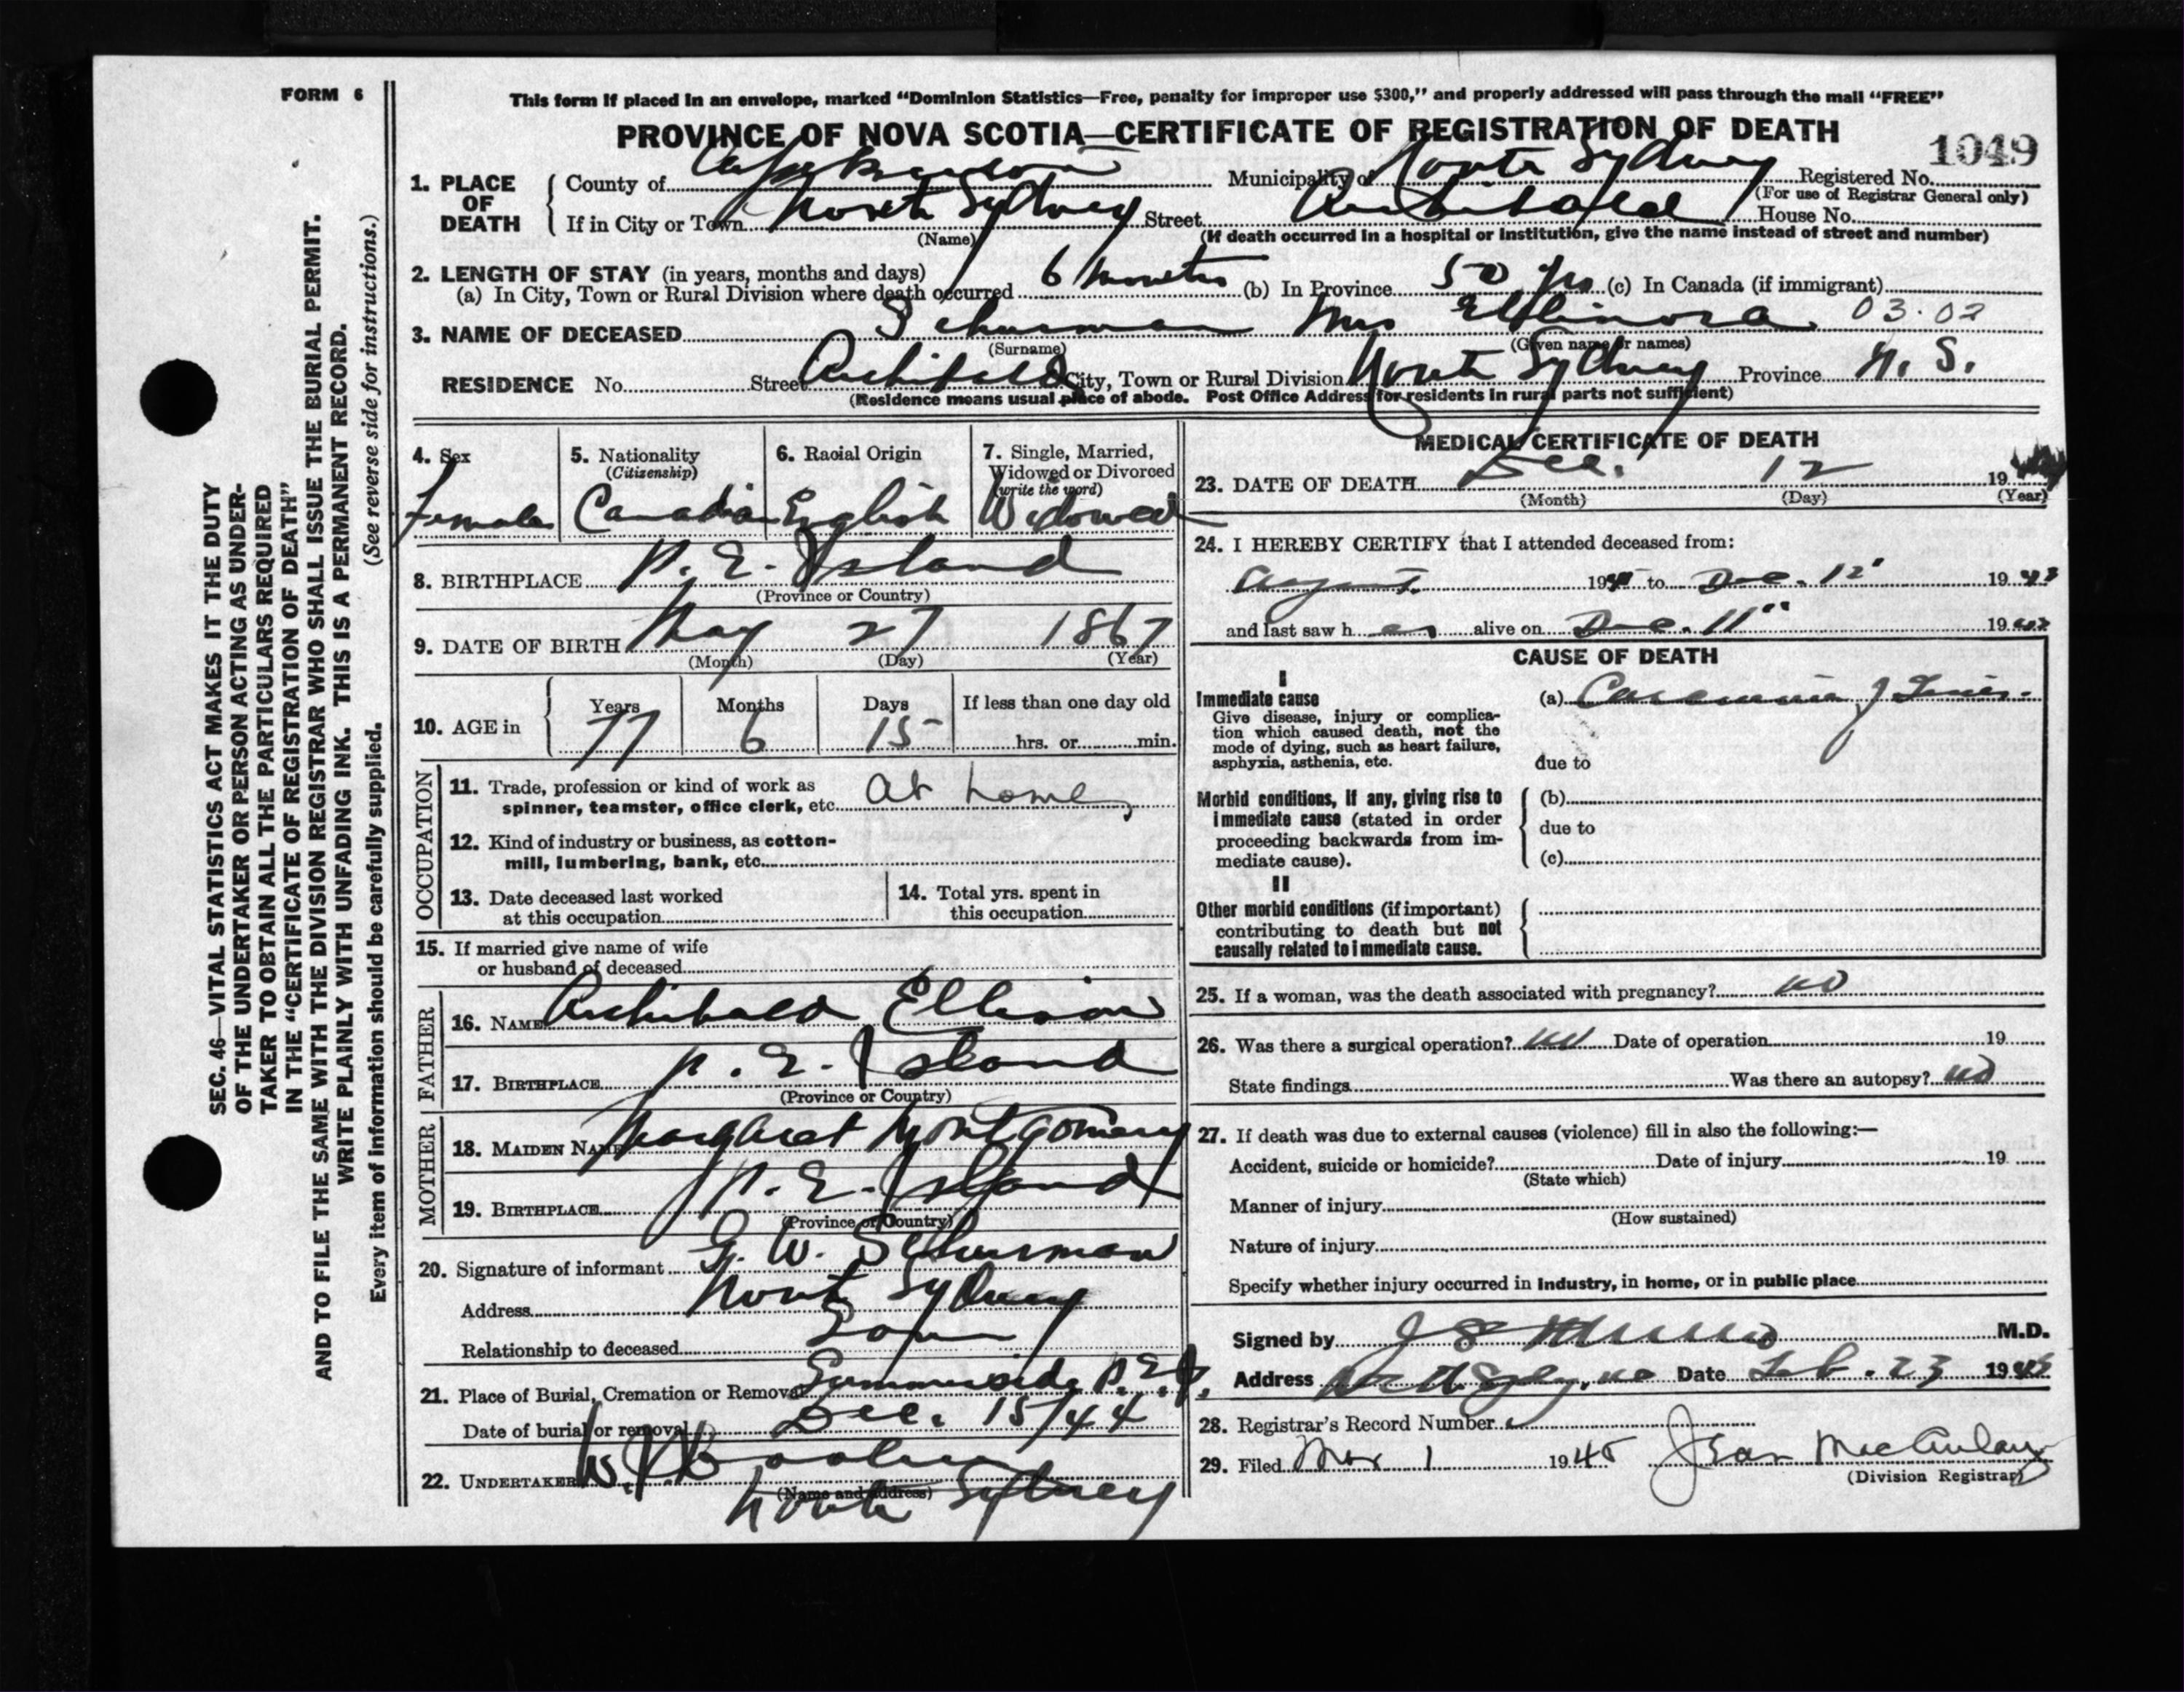 FORM 6
This form if placed in an envelope, marked "Dominion Statistics—Free, penalty for improper use $300," and properly addressed will pass through the mail "FREE"
PROVINCE OF NOVA SCOTIA—CERTIFICATE OF REGISTRATION OF DEATH
1049
1. PLACE OF DEATH { County of Cape Breton Municipality of North Sydney Registered No.
(For use of Registrar General only)
If in City or Town North Sydney Street Archibald House No.
(Name) (If death occurred in a hospital or institution, give the name instead of street and number)
2. LENGTH OF STAY (in years, months and days)
(a) In City, Town or Rural Division where death occurred 6 months (b) In Province 50 yrs (c) In Canada (if immigrant)
3. NAME OF DECEASED Schurman Mrs Ellinora 03.02
(Surname) (Given name or names)
RESIDENCE No. Street Archibald City, Town or Rural Division North Sydney Province N. S.
(Residence means usual place of abode. Post Office Address for residents in rural parts not sufficient)
4. Sex
Female
5. Nationality
(Citizenship)
Canadian
6. Racial Origin
English
7. Single, Married,
Widowed or Divorced
(write the word)
Widowed
8. BIRTHPLACE P. E. Island
(Province or Country)
9. DATE OF BIRTH May 27 1867
(Month) (Day) (Year)
10. AGE in { Years Months Days If less than one day old
77 6 15 hrs. or min.
OCCUPATION
11. Trade, profession or kind of work as
spinner, teamster, office clerk, etc. at home
12. Kind of industry or business, as cotton-
mill, lumbering, bank, etc.
13. Date deceased last worked
at this occupation
14. Total yrs. spent in
this occupation
15. If married give name of wife
or husband of deceased
FATHER
16. NAME Archibald Ellison
17. BIRTHPLACE P. E. Island
(Province or Country)
MOTHER
18. MAIDEN NAME Margaret Montgomery
19. BIRTHPLACE P. E. Island
(Province or Country)
20. Signature of informant G. W. Schurman
Address North Sydney
Relationship to deceased Son
21. Place of Burial, Cremation or Removal Summerside P.E.I.
Date of burial or removal Dec. 15/44
22. UNDERTAKER
(Name and address)
North Sydney
MEDICAL CERTIFICATE OF DEATH
23. DATE OF DEATH Dec. 12 19
(Month) (Day) (Year)
24. I HEREBY CERTIFY that I attended deceased from:
August 19 to Dec. 12" 19
and last saw h er alive on Dec. 11" 19
CAUSE OF DEATH
I
Immediate cause
Give disease, injury or complica-
tion which caused death, not the
mode of dying, such as heart failure,
asphyxia, asthenia, etc.
(a) Carcinoma
due to
Morbid conditions, if any, giving rise to
immediate cause (stated in order
proceeding backwards from im-
mediate cause).
(b)
due to
(c)
II
Other morbid conditions (if important)
contributing to death but not
causally related to immediate cause.
25. If a woman, was the death associated with pregnancy? no
26. Was there a surgical operation? no Date of operation 19
State findings Was there an autopsy? no
27. If death was due to external causes (violence) fill in also the following:—
Accident, suicide or homicide? Date of injury 19
(State which)
Manner of injury
(How sustained)
Nature of injury
Specify whether injury occurred in industry, in home, or in public place
Signed by M.D.
Address Date Feb. 23 1945
28. Registrar's Record Number
29. Filed Mar 1 1945 Jean MacAulay
(Division Registrar)
SEC. 46—VITAL STATISTICS ACT MAKES IT THE DUTY
OF THE UNDERTAKER OR PERSON ACTING AS UNDER-
TAKER TO OBTAIN ALL THE PARTICULARS REQUIRED
IN THE "CERTIFICATE OF REGISTRATION OF DEATH"
AND TO FILE THE SAME WITH THE DIVISION REGISTRAR WHO SHALL ISSUE THE BURIAL PERMIT.
WRITE PLAINLY WITH UNFADING INK. THIS IS A PERMANENT RECORD.
Every item of information should be carefully supplied. (See reverse side for instructions.)